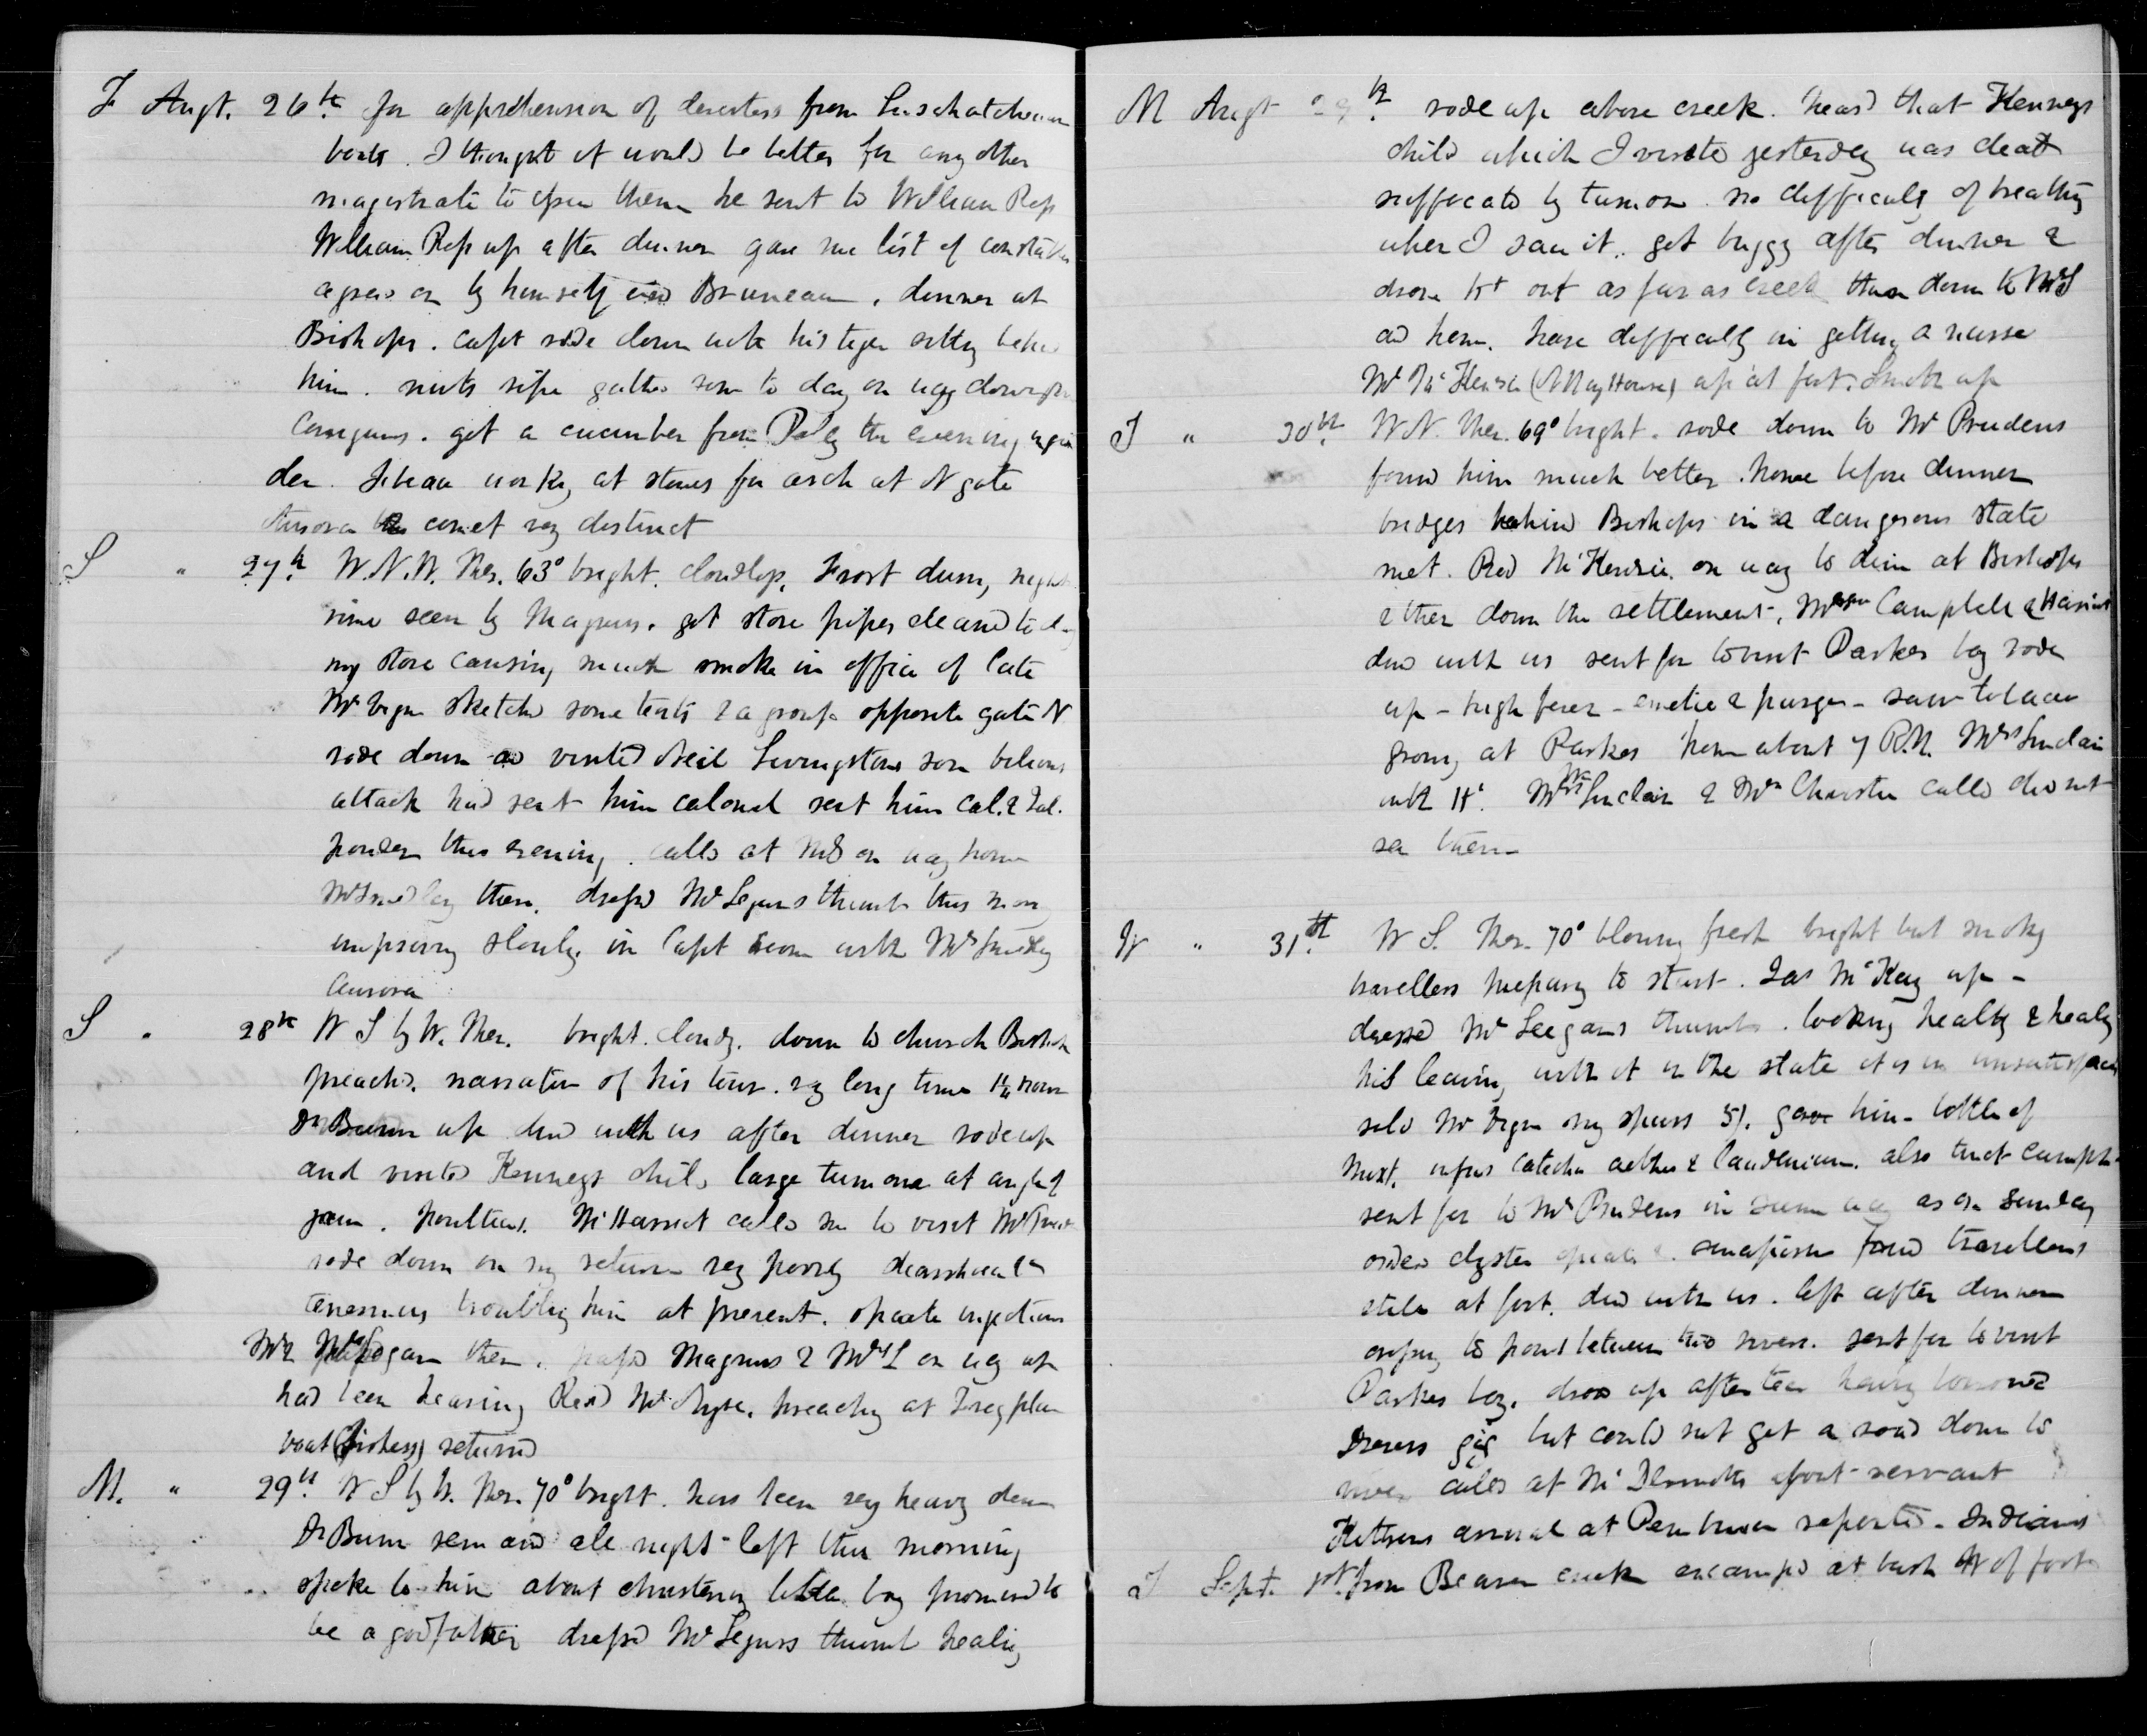 F Augt. 26th for apprehension of deserters from Saschatchewan
boats. I thought it would be better for any other
magistrate to open them he sent to William Ross
William Ross up after dinner gave me list of constables
agreed on by himself and Bruneau. dinner at
Bishops. Capt rode down with his tiger sitting behind
him. nuts ripe gathd some to day on way down from
got a cucumber from Poly this evening in
den. working at stones for arch at N gate
Aurora comet very distinct
S " 27th W.N.W. Ther. 63° bright. cloudless. Frost during night
rime seen by Magnus. got stove pipes cleaned to day
my stove causing much smoke in office of late
Mr sketched some tents & a group opposite gate N
rode down and visited Neil Livingstons son bilious
attack had sent him calomel sent him Cal. & Jal.
powder this evening. called at McD on way home
Mr Smedley there. dressd Mr Seguns thumb this morng
improving slowly. in Capt room with Mr Smedley
Aurora
S " 28th W S by W. Ther. bright. cloudy. down to church Bishop
preachd. narrative of his tour. very long time 1¼ hour
Dr Bunn up dind with us after dinner rode up
and visited Kennegs child large tumour at angle of
jaw. poulticed. McHarriet called me to visit Mr
rode down on my return very poorly diarrhoea &
tenesmus troubling him at present. opiate injections
Mr & Mrs Logan there. passd Magnus & Mrs L on way up
had been hearing Revd Mr preaching at
boat (fishers) returnd
M. " 29th W S by W. Ther. 70° bright. has been very heavy dew
Dr Bunn remaind all night - left this morning
spoke to him about christening little boy promised to
be a godfather dressd Mr Seguns thumb healing
M Augt 29th rode up above creek. heard that Kennegs
child which I visited yesterday was dead
suffocated by tumour. no difficulty of breathing
when I saw it. got buggy after dinner &
drove it out as far as creek then down to McD
and home. have difficulty in getting a nurse
Mr McKenzie up at fort. Smith up
T " 30th W N. Ther. 69° bright. rode down to Mr Prudens
found him much better. home before dinner
bridges behind Bishops in a dangerous state
met Rod McKenzie on way to dine at Bishops
& then down the settlement. Campbell & Harriet
dind with us sent for to visit Parkes boy rode
up - high fever - emetic & purges - saw tobacco
growing at Parkes home about 7 P.M. Mrs Sinclair
with Ht. Mrs Wm Sinclair & Mrs Christie calld did not
see them
W " 31st W S. Ther. 70° blowing fresh bright but smoky
travellers preparing to start. Jas McKay up -
dressed Mr Seegans thumb. looking healthy & healing
his leaving with it in the state it is in unsatisfacy
sold Mr my spurs 5/. gave him bottle of
mixt. infus Catechu aether & laudenum. also tinct camph.
sent for to Mr Prudens in same way as on Sunday
orderd clyster opiate & sinapism found travellers
still at fort. dind with us. left after dinner
crossing to point between two rivers. sent for to visit
Parkes boy. drove up after tea having borrowed
gig but could not get a road down to
river called at McDermotts about servant
arrival at Pembina reported. Indians
T Sept. 1st from Beaver creek encamped at bush W of fort